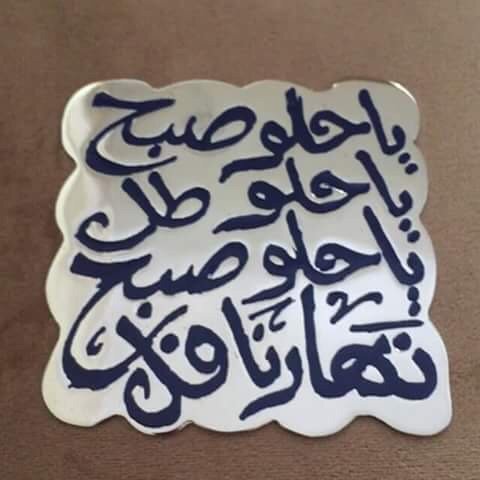 يا حلو صبح
يا حلو طل
يا حلو صبح
نهارنا فل